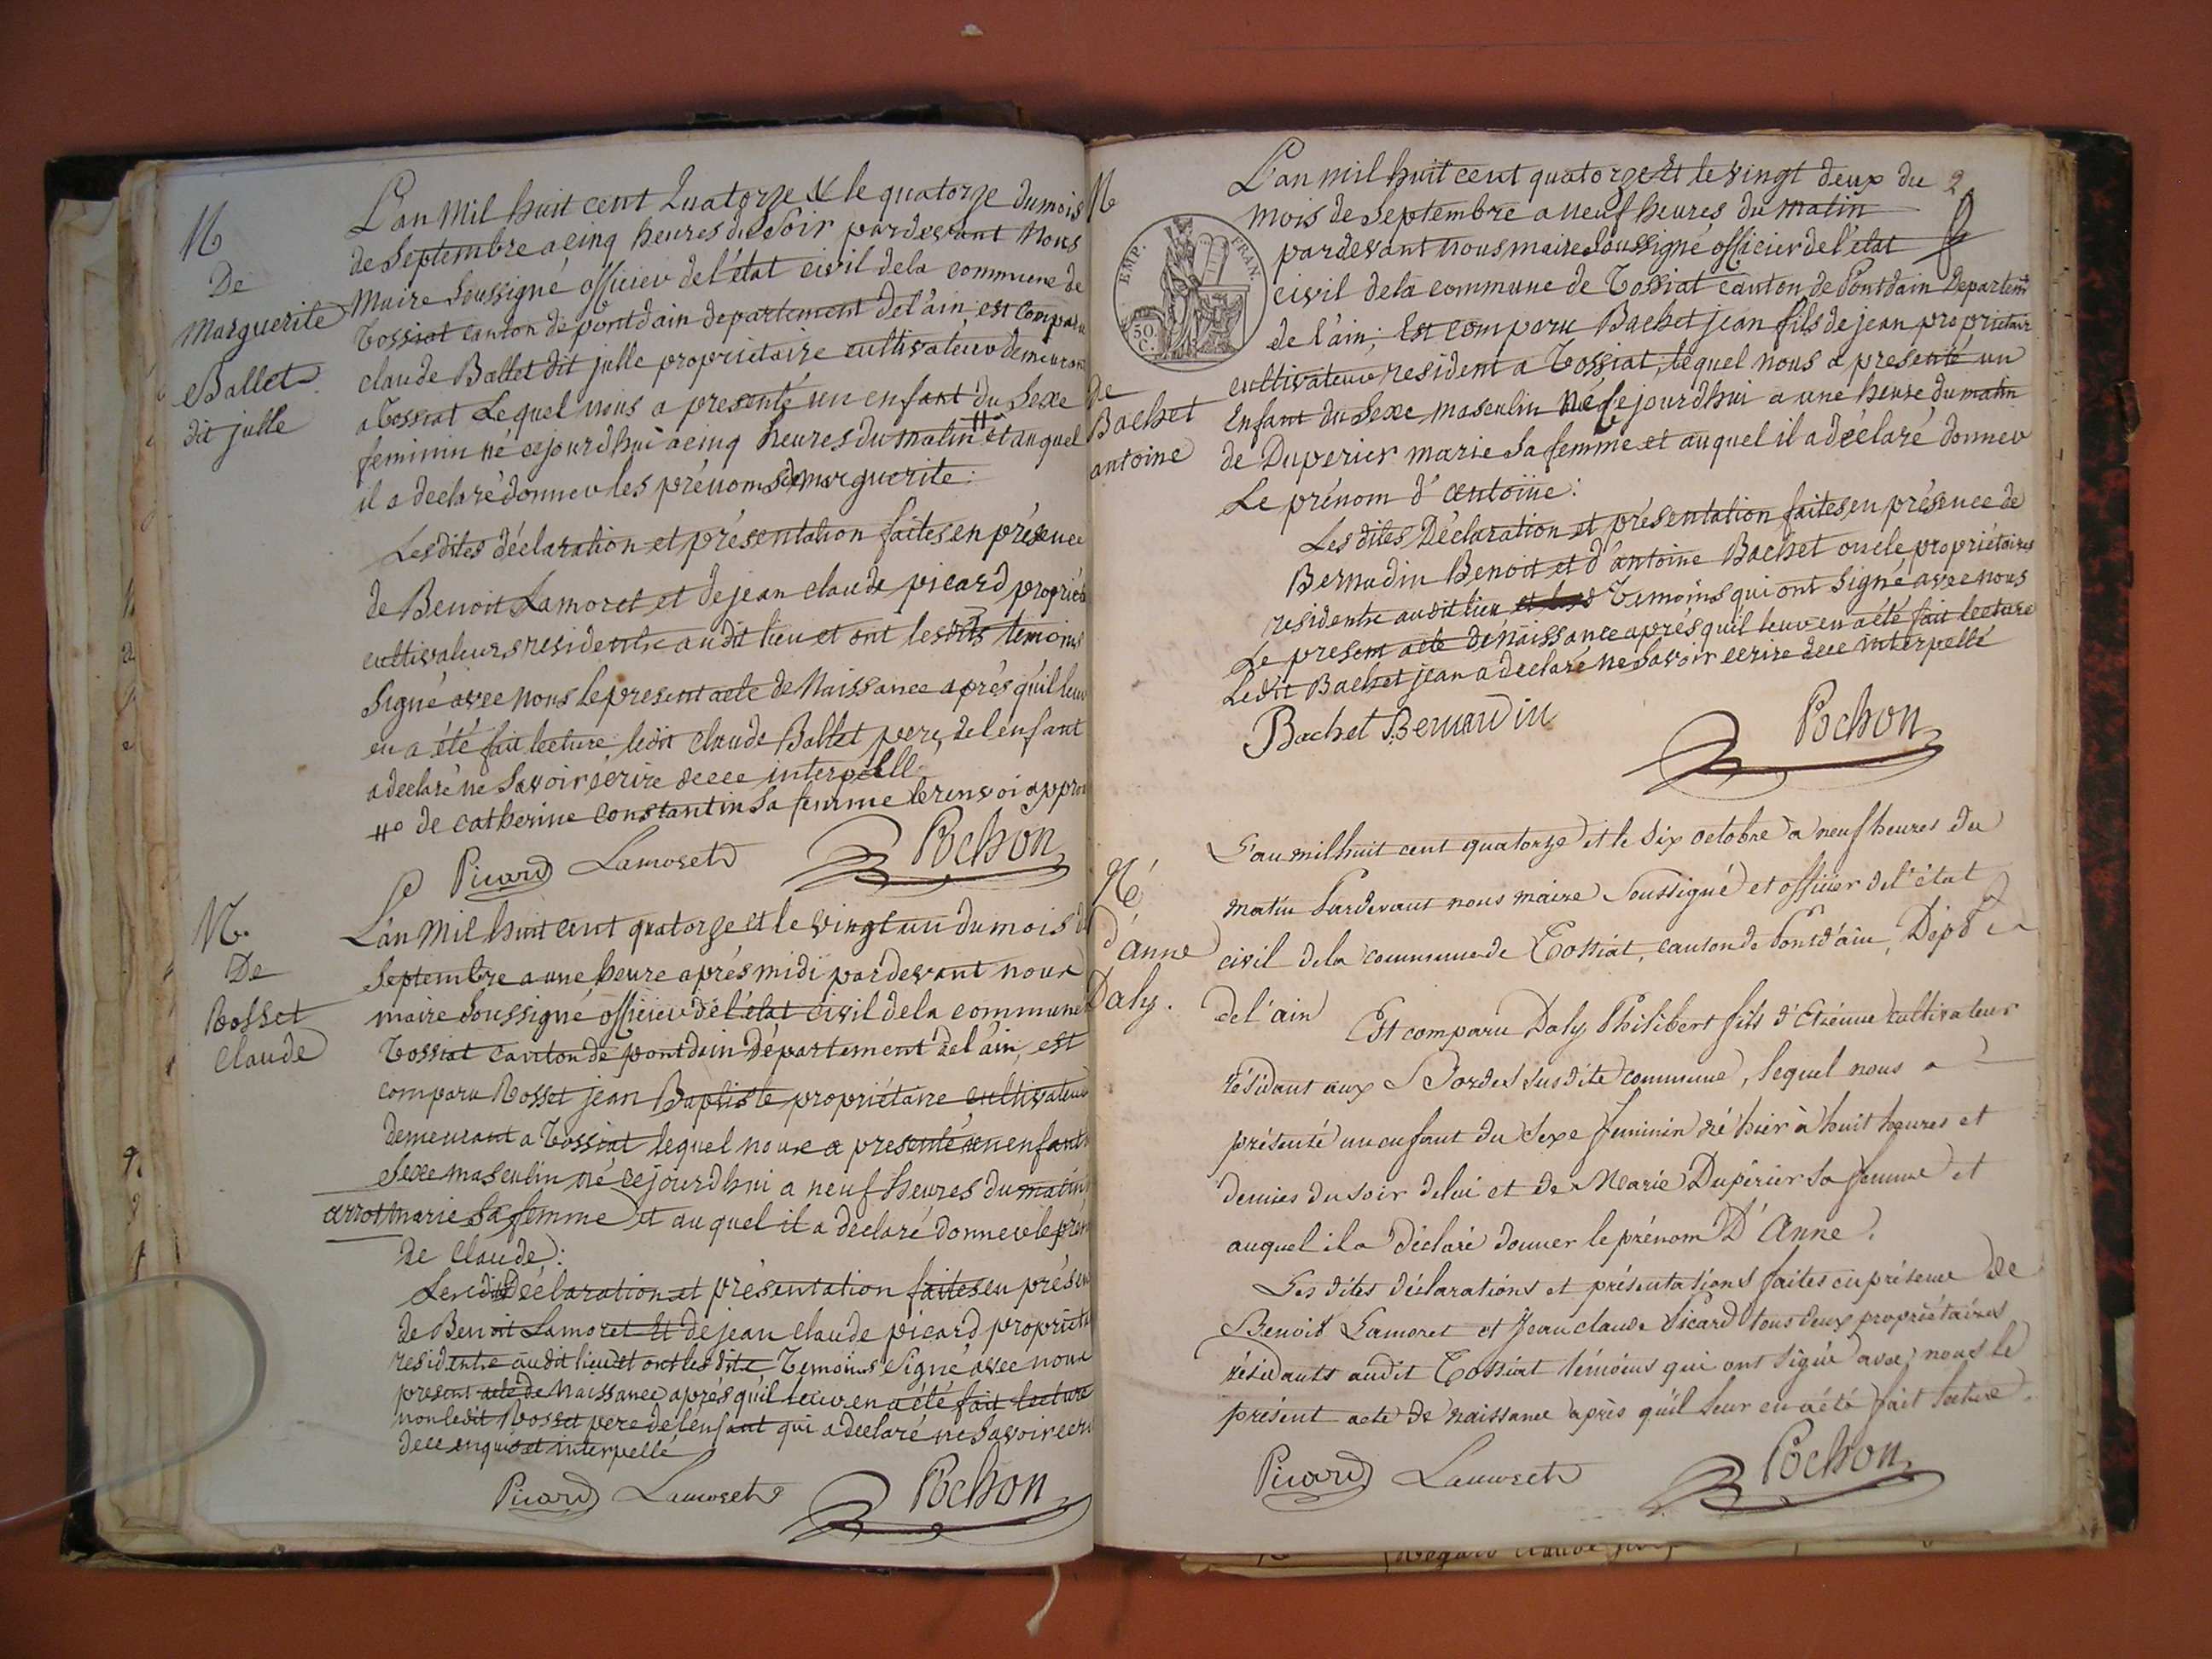 N
De
Marguerite
Ballet
dit julle
L'an Mil huit cent Quatorze & le quatorze du mois
de Septembre a cinq heures du Soir pardevant Nous
Maire Soussigné officier de l'état civil de la commune de
Tossiat canton de pontdain departement de l'ain, est Comparu
claude Ballet dit julle propriétaire cultivateur demeurant
a Tossiat Lequel nous a presenté un enfant du Sexe
feminin né cejourdhui a cinq heures du matin # et auquel
il a declaré donner les prénoms de marguerite:
Lesdites déclaration et présentation faites en présence
de Benoit Lamoret et de jean claude picard propriét
cultivateurs residents audit lieu et ont lesdits temoins
Signé avec nous le present acte de Naissance après qu'il leur
en a été fait lecture ledit claude Ballet pere de l'enfant
a declaré ne Savoir écrire de ce interpellé
# de catherine constantin Sa femme le renvoi appro
Picard Lamoret Pochon
N.
De
Rosset
Claude
L'an Mil huit cent quatorze et le vingt un du mois d
Septembre a une heure aprés midi pardevant nous
maire Soussigné officier de l'état civil de la commune
Tossiat canton de pontdain Département de l'ain, est
comparu Rosset jean Baptiste propriétaire cultivateur
demeurant a Tossiat lequel nous a presenté un enfant
Sexe masculin né cejourdhui a neuf heures du matin
arrot marie Sa femme et auquel il a declaré donner le prén
de Claude:
Lesdites Déclaration et présentation faites en présen
de Benoit Lamoret Et de jean claude picard propriéta
residents audit lieu et ont lesdits Temoins Signé avec nous
present acte de Naissance après qu'il leur en a été fait lecture
non ledit Rosset pere de l'enfant qui a declaré ne Savoir ecri
de ce enquis et interpellé
Picard Lamoret Pochon
N
de
Bachet
antoine
2
EMP. FRAN.
50 C.
L'an mil huit cent quatorze Et le vingt deux du
mois de Septembre a neuf heures du matin
pardevant nous maire Soussigné officier de l'état
civil de la commune de Tossiat canton de Pontdain Departemt
de l'ain; Est comparu Bachet jean fils de jean propriétair
cultivateur resident a Tossiat, lequel nous a presenté un
Enfant du Sexe masculin Né Cejourdhui a une heure du matin
de Duperier marie Sa femme et auquel il a déclaré donner
Le prénom d'antoine:
Lesdites Déclaration et présentation faites en présence de
Bernadin Benoit et d'antoine Bachet oncle propriétaires
residents audit lieu Temoins qui ont Signé avec nous
Le present acte de Naissance après qu'il leur en a été fait lecture
Ledit Bachet jean a declaré ne Savoir ecrire de ce interpellé
Bachet Bernardin Pochon
Né
d'anne
Daly.
L'an mil huit cent quatorze et le six octobre a neuf heures du
matin Pardevant nous maire Soussigné et officier de l'état
civil de la commune de Tossiat, canton de Pont d'ain, Dépt
de l'ain Est comparu Daly Philibert fils d'Etiénne cultivateur
résidant aux Bordes susdite commune, lequel nous a
présenté un enfant du Sexe feminin né hier à huit heures et
demies du soir de lui et de Marie Dupérier sa femme et
auquel il a déclaré donner le prénom D'Anne.
Les dites déclarations et présentations faites en présence de
Benoit Lamoret et Jean claude Picard tous deux propriétaires
résidants audit Tossiat témoins qui ont signé avec nous le
présent acte de naissance après qu'il leur en a été fait lecture.
Picard Lamoret Pochon